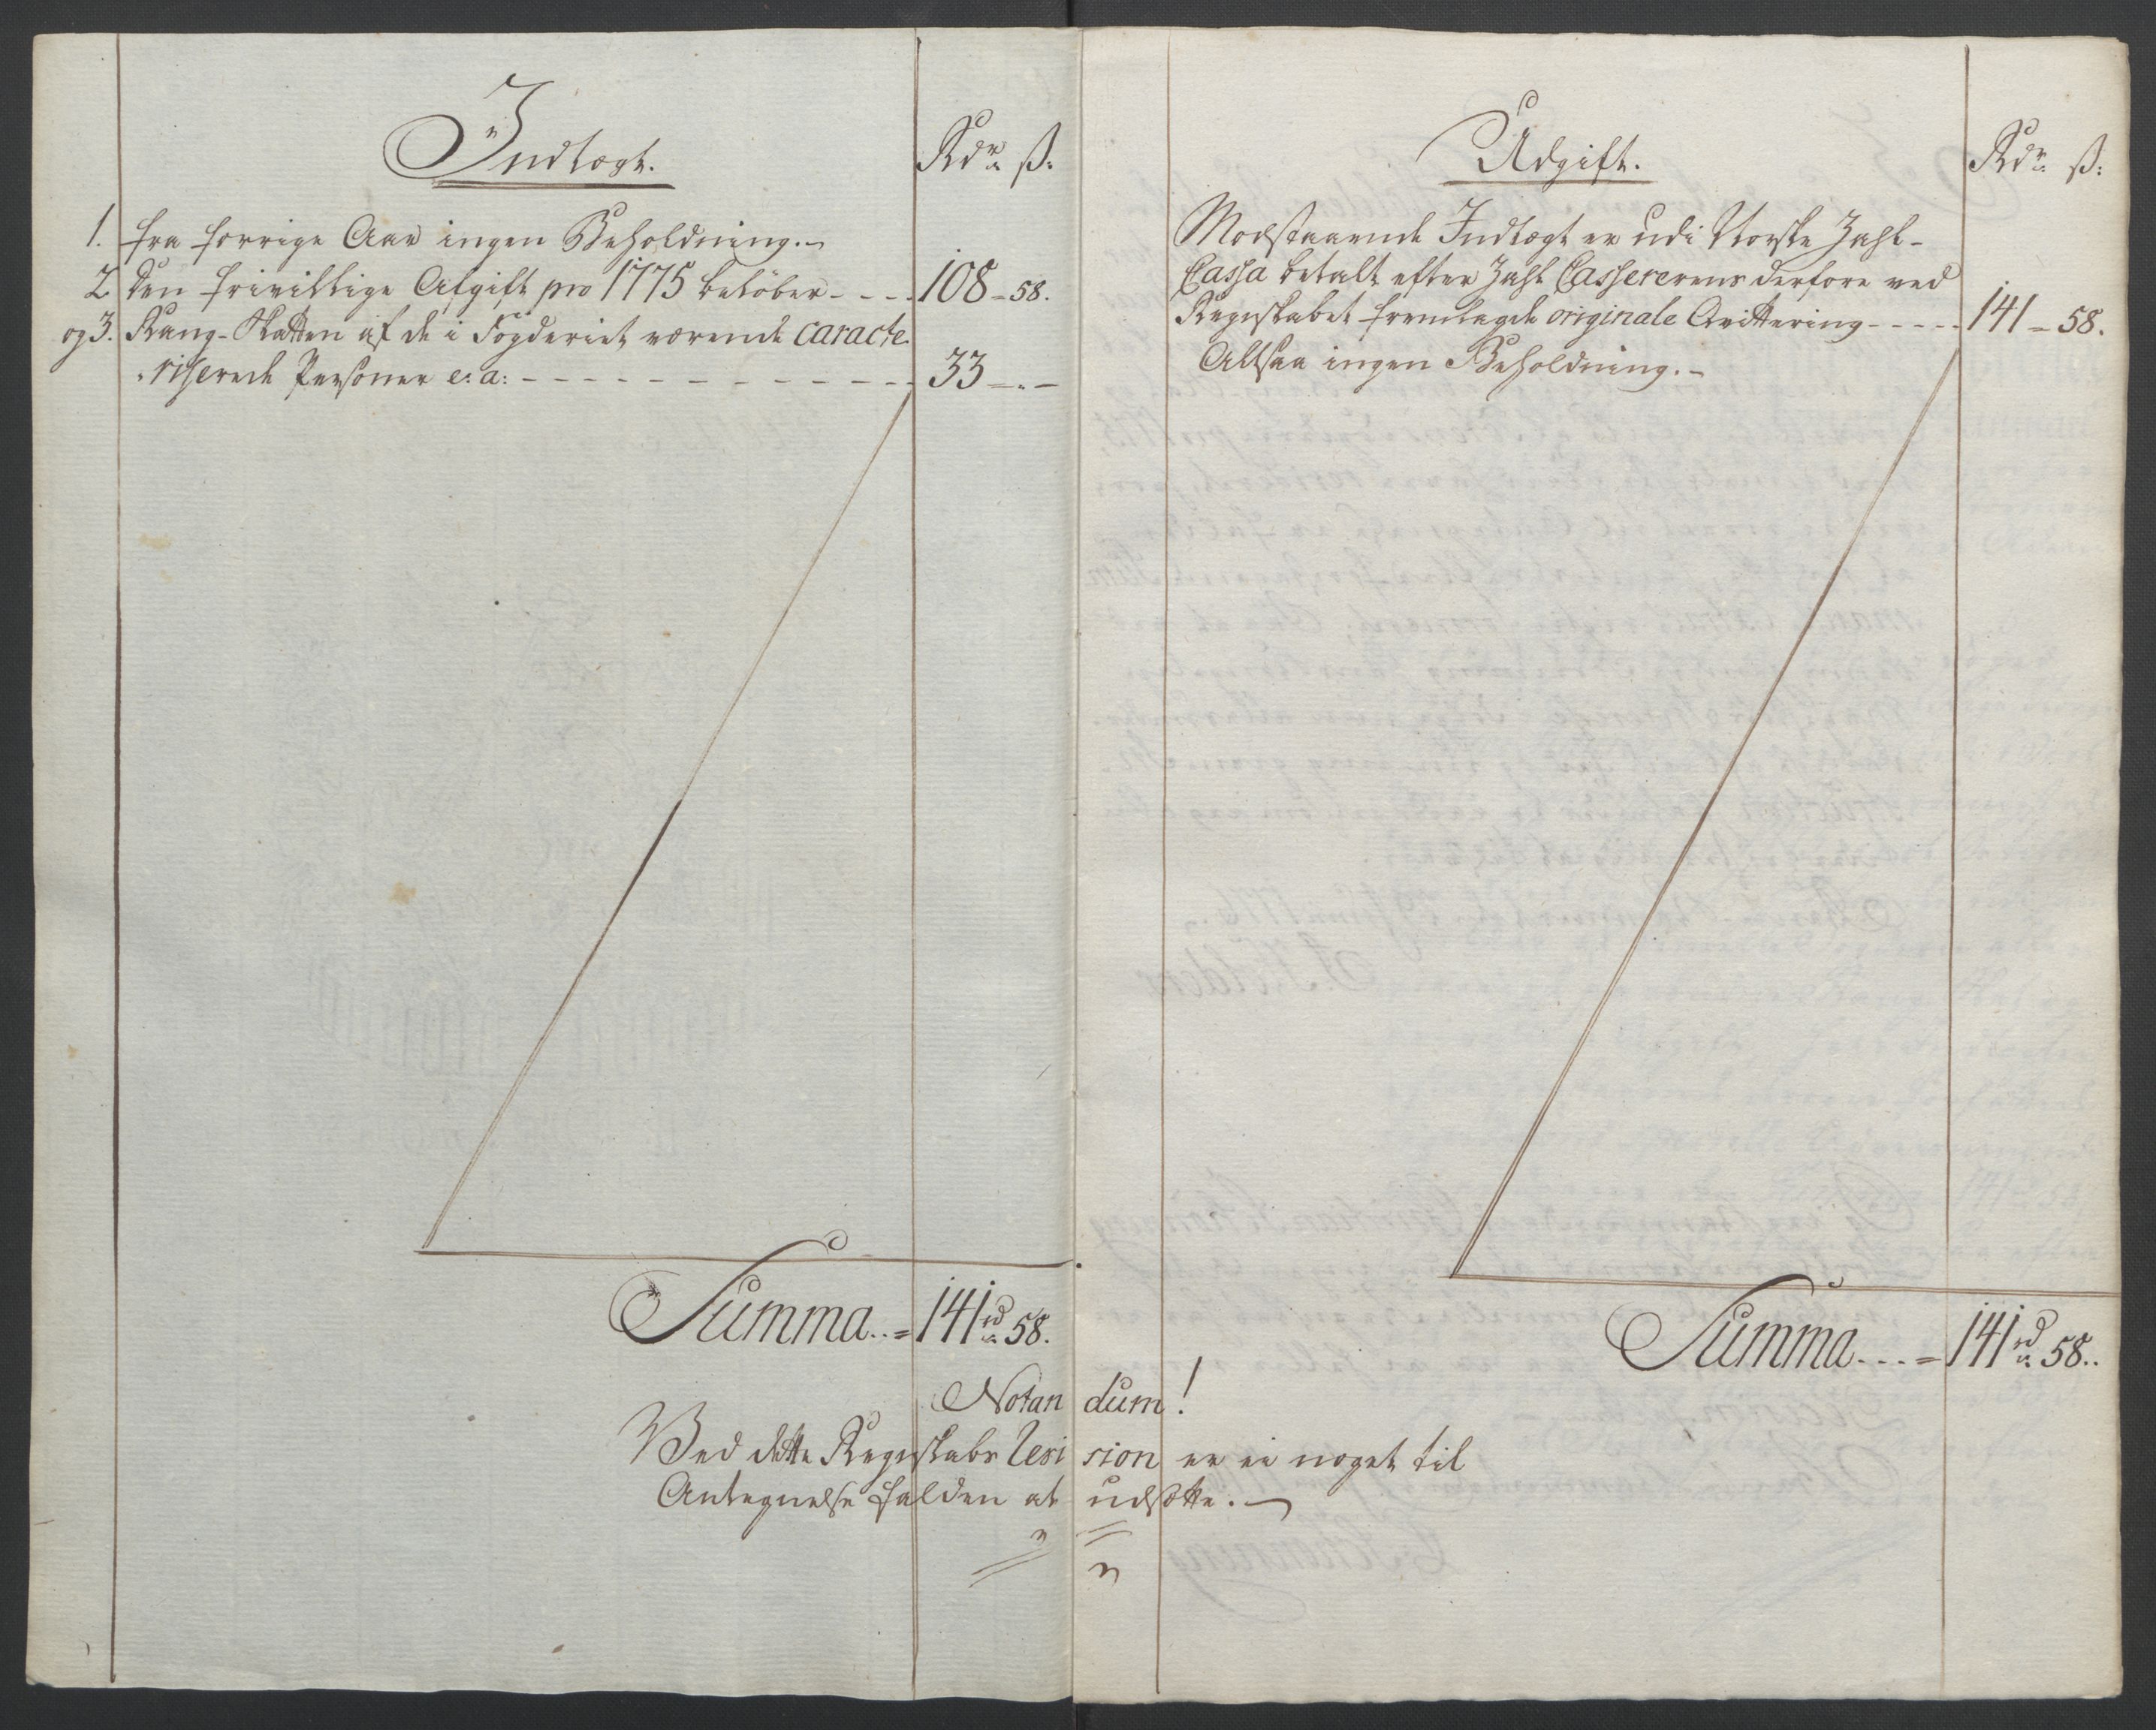 Indtægt.
Rdr ß:
1. Fra forrige Aar ingen Beholdning.
2. Den frivillige Afgift pro 1775 beløber - - - - 108 - 58.
og 3. Rang-Skatten af de i Fogderiet værende caracte-
riserede Personer e: a: - - - - - - - - - - - - 33 - " -
Summa . . = 141 rd 58.
Udgift.
Rdr ß:
Modstaaende Indtægt er udi Norske Zahl-
Cassa betalt efter Zahl Cassererens derfore ved
Regnskabet fremlagde originale Qvittering - - - - - 141 - 58.
Altsaa ingen Beholdning. -
Summa . . . = 141 rd 58..
Notandum!
Ved dette Regnskabs Revision er ei noget til
Antegnelse falden at udsætte. -